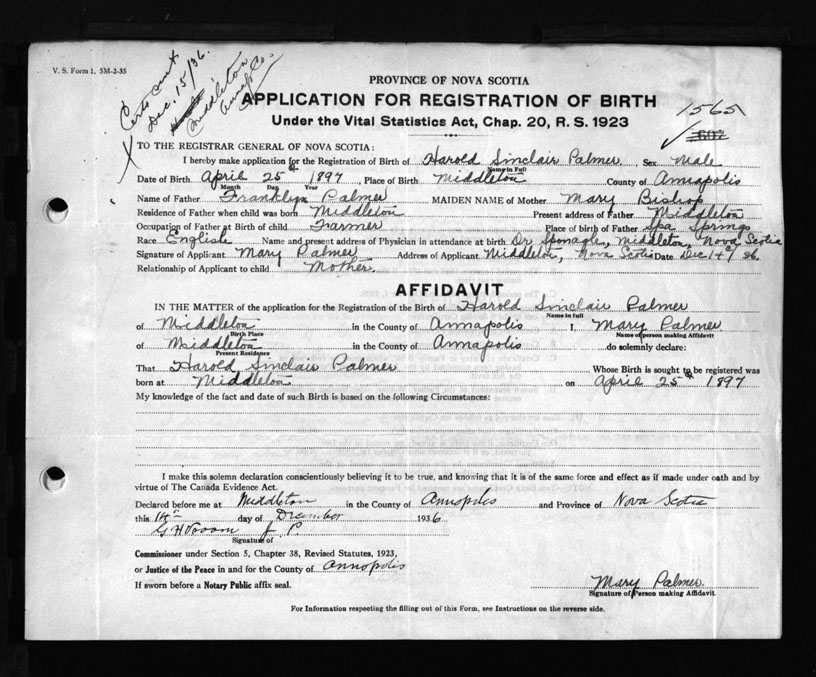 V. S. Form 1. 5M-2-35
Certs sent
Dec. 15/36.
Middleton
Anna. Co.
PROVINCE OF NOVA SCOTIA
APPLICATION FOR REGISTRATION OF BIRTH
Under the Vital Statistics Act, Chap. 20, R. S. 1923
1565
TO THE REGISTRAR GENERAL OF NOVA SCOTIA:
I hereby make application for the Registration of Birth of Harold Sinclair Palmer. Sex Male
Name in Full
Date of Birth April 25th 1897, Place of Birth Middleton County of Annapolis
Month Day Year
Name of Father Franklyn Palmer MAIDEN NAME of Mother Mary Bishop
Residence of Father when child was born Middleton Present address of Father Middleton
Occupation of Father at Birth of child Farmer Place of birth of Father Spa Springs
Race English Name and present address of Physician in attendance at birth Dr Sponagle, Middleton, Nova Scotia
Signature of Applicant Mary Palmer Address of Applicant Middleton, Nova Scotia Date Dec 14 / 36.
Relationship of Applicant to child Mother.
AFFIDAVIT
IN THE MATTER of the application for the Registration of the Birth of Harold Sinclair Palmer
Name in full
of Middleton in the County of Annapolis I, Mary Palmer
Birth Place Name of person making Affidavit
of Middleton in the County of Annapolis do solemnly declare:
Present Residence
That Harold Sinclair Palmer Whose Birth is sought to be registered was
born at Middleton on April 25th 1897
My knowledge of the fact and date of such Birth is based on the following Circumstances:
I make this solemn declaration conscientiously believing it to be true, and knowing that it is of the same force and effect as if made under oath and by
virtue of The Canada Evidence Act.
Declared before me at Middleton in the County of Annapolis and Province of Nova Scotia
this 14th day of December 1936
G H Vroom J. P.
Signature of
Commissioner under Section 5, Chapter 38, Revised Statutes, 1923,
or Justice of the Peace in and for the County of Annapolis
If sworn before a Notary Public affix seal.
Mary Palmer.
Signature of Person making Affidavit.
For Information respecting the filling out of this Form, see Instructions on the reverse side.